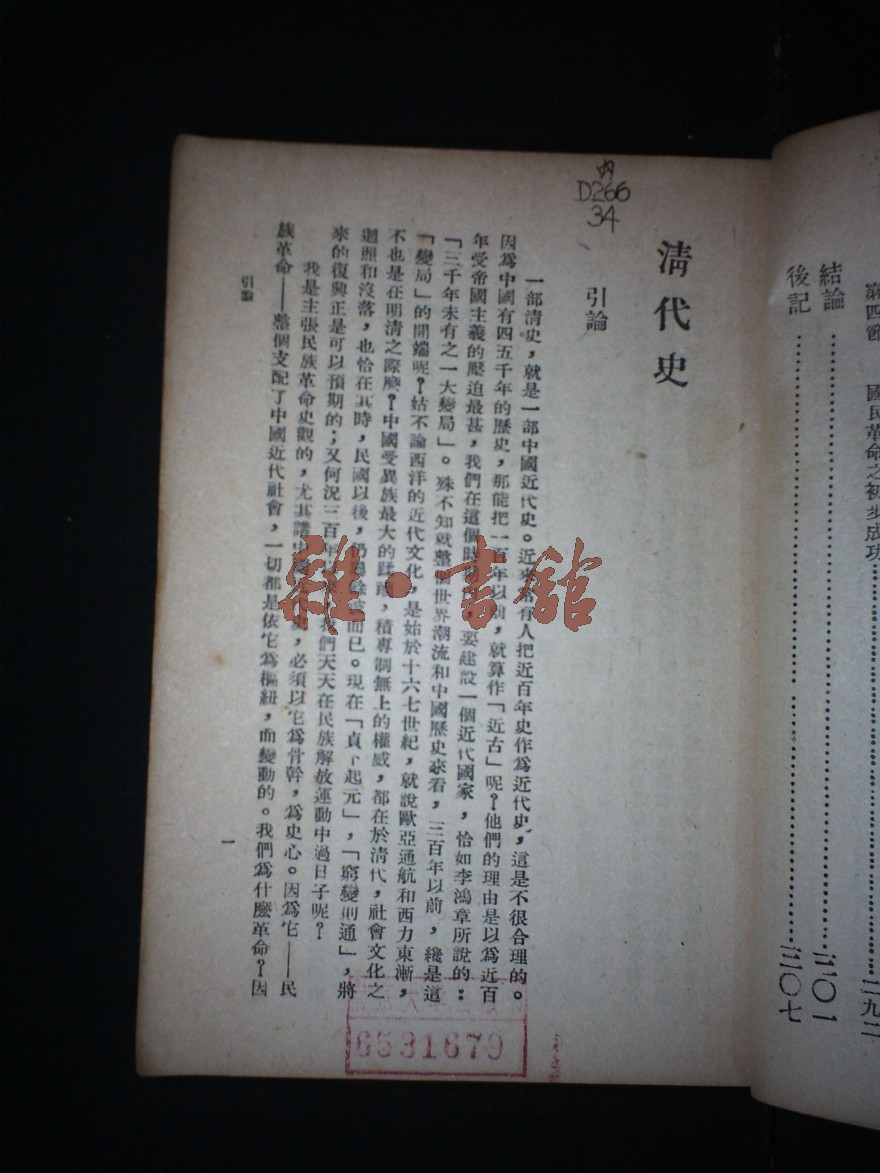 第四節 國民革命之初步成功……二九二
結論……三〇一
後記……三〇七
D266
34
清代史
引論
一部清史，就是一部中國近代史。近來常有人把近百年史作爲近代史，這是不很合理的。
因爲中國有四五千年的歷史，那能把一百年以前，就算作「近古」呢？他們的理由是以爲近百
年受帝國主義的壓迫最甚，我們在這個時，要建設一個近代國家，恰如李鴻章所說的：
「三千年未有之一大變局」。殊不知就整個世界潮流和中國歷史來看，三百年以前，纔是這
「變局」的開端呢？姑不論西洋的近代文化，是始於十六七世紀，就說歐亞通航和西力東漸，
不也是在明清之際麽？中國受異族最大的，積專制無上的權威，都在於清代，社會文化之
迴照和沒落，也恰在其時，民國以後，仍而已。現在「貞下起元」，「窮變則通」，將
來的復興正是可以預期的；又何況三百年我們天天在民族解放運動中過日子呢？
我是主張民族革命史觀的，尤其講中史，必須以它爲骨幹，爲史心。因爲它——民
族革命——整個支配了中國近代社會，一切都是依它爲樞紐，而變動的。我們爲什麽革命？因
引論
一
雜·書館
6531679